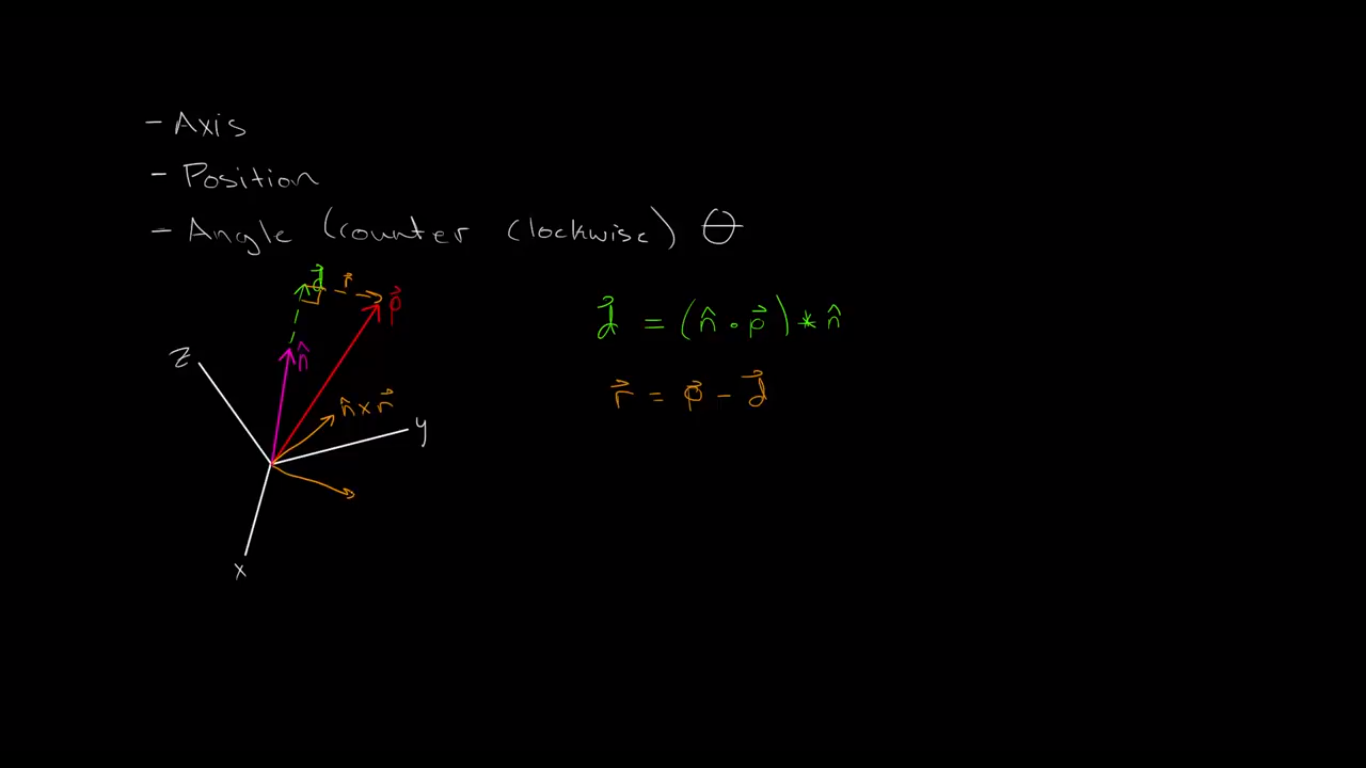 - Axis
- Position
- Angle (counter clockwise) θ
d⃗ r⃗ p⃗
d⃗ = (n̂ • p⃗) * n̂
z n̂
r⃗ = p⃗ - d⃗
n̂ x r⃗
y
x